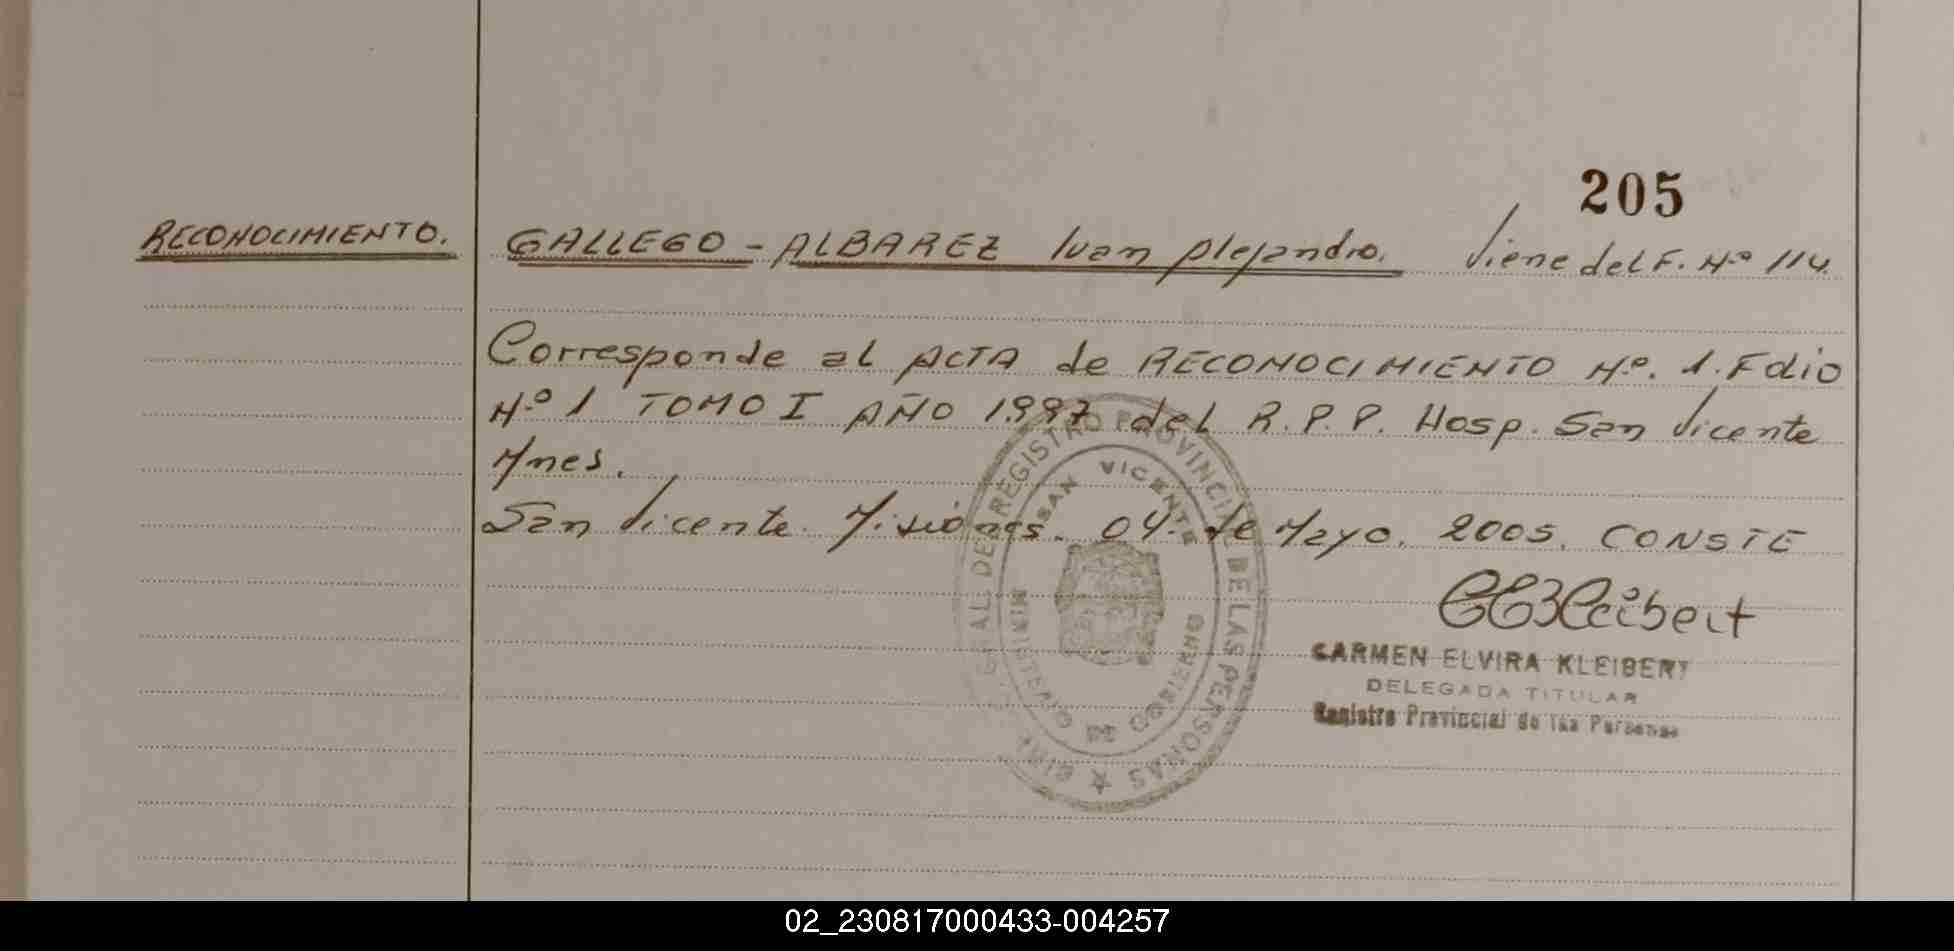 205
RECONOCIMIENTO. GALLEGO - ALBAREZ Ivan Alejandro. Viene del F. Nº 114.
Corresponde al ACTA de RECONOCIMIENTO Nº. 1. Folio
Nº 1 TOMO I AÑO 1.997 del R. P. P. Hosp. San Vicente
Mnes.
San Vicente. Misiones. 04. de Mayo. 2005. CONSTE
CEKleibert
CARMEN ELVIRA KLEIBERT
DELEGADA TITULAR
Registro Provincial de las Personas
GRAL. DEL REGISTRO PROVINCIAL DE LAS PERSONAS ★
SAN VICENTE
MINISTERIO DE GOBIERNO
02_230817000433-004257